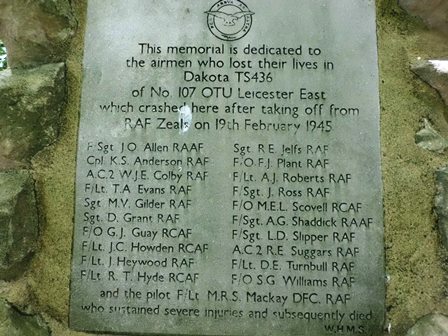 This memorial is dedicated to
the airmen who lost their lives in
Dakota TS436
of No. 107 OTU Leicester East
which crashed here after taking off from
RAF Zeals on 19th February 1945
F Sgt. J.O. Allen RAAF
Cpl. K.S. Anderson RAF
A.C.2 W.J.E. Colby RAF
F/Lt. T.A. Evans RAF
Sgt. M.V. Gilder RAF
Sgt. D. Grant RAF
F/O G.J. Guay RCAF
F/Lt. J.C. Howden RCAF
F/Lt. J. Heywood RAF
F/Lt. R. T. Hyde RCAF
Sgt. R.E. Jelfs RAF
F/O F.J. Plant RAF
F/Lt. A.J. Roberts RAF
F/Sgt. J. Ross RAF
F/O M.E.L. Scovell RCAF
F/Sgt. A.G. Shaddick RAAF
F/Sgt. L.D. Slipper RAF
A.C.2 R.E Suggars RAF
F/Lt. D.E. Turnbull RAF
F/O S.G Williams RAF
and the pilot F/Lt M.R.S. Mackay DFC. RAF
who sustained severe injuries and subsequently died
W.H.M.S.